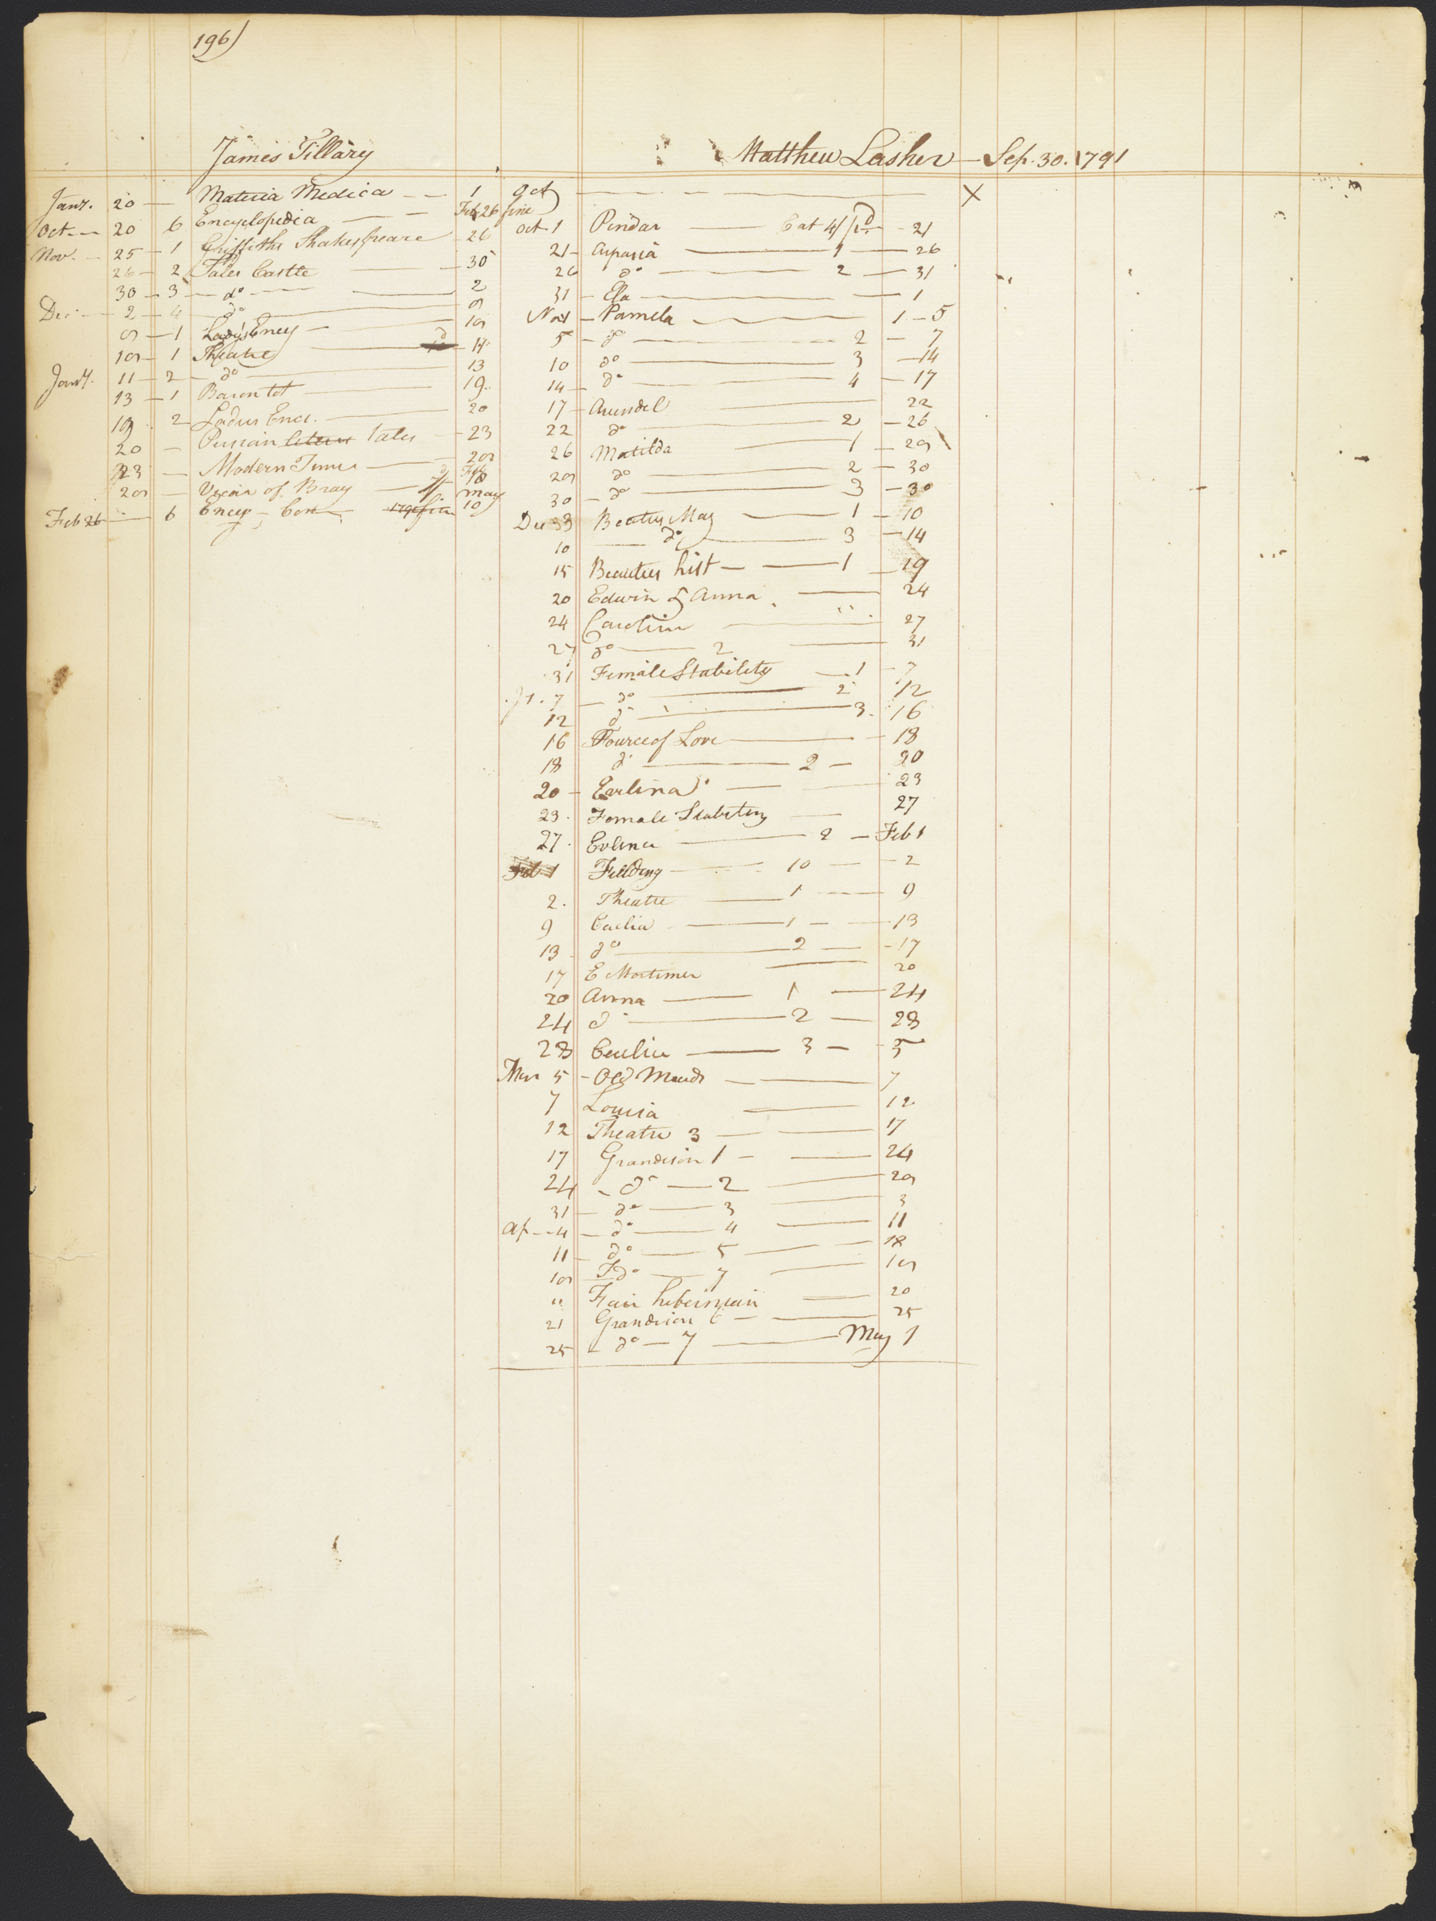 196)
James Tillary
Jany. 20 — Materia Medica — — 1
Oct — 20 — 6 Encyclopedia — — Feb 26 fine
Nov. — 25 — 1 Griffiths Shakespeare — 26
26 — 2 Tales Castle — 30
30 — 3 — do — 2
Dec. — 2 — 4 — do — 9
9 — 1 Lady's Ency — 10
10 — 1 Theatre — 14
Jany. 11 — 2 — do — 13
13 — 1 Baron — 19
19 . 2 Ladies Enc. — 20
20 — Persian letters tales — 23
23 — Modern Times — 29
29 — Vicar of Bray — Feb 8
Feb 26 — 6 Encyp — Com — May 10
Matthew Lasher — Sep. 30. 1791
Oct — — — — X
Oct 1 Pindar — Cat 4/ Pd — 21
21 — Aspasia — 1 — 26
26 do — 2 — 31
31 — Ela — — 1
Nov 1 — Pamela — 1 — 5
5 — do — 2 — 7
10 do — 3 — 14
14 — do — 4 — 17
17 — Arundel — 22
22 do — 2 — 26
26 Matilda — 1 — 29
29 do — 2 — 30
30 — do — 3 — 30
Dec 3 Beauties Mag — 1 — 10
10 — do — 3 — 14
15 Beauties hist — — 1 — 19
20 Edwin & Anna — 24
24 Caroline — 27
27 do — 2 — 31
31 Female Stability — 1 — 7
Ja. 7 — do — 2 12
12 do — 3. 16
16 Fource of Love — 18
18 do — 2 — 20
20 — Evelina do — 23
23 . Female Stability — 27
27 . Evlina — 2 — Feb 1
Feb 1 Feilding — 10 — 2
2. Theatre — 1 — 9
9 Cecilia — 1 — 13
13 do — 2 — 17
17 E Mortimer — 20
20 Anna — 1 — 24
24 do — 2 — 28
28 Cecilia — 3 — 5
Mar 5 — Old Maids — 7
7 Louisa — 12
12 Theatre 3 — — 17
17 Grandison 1 — — 24
24 — do — 2 — 29
31 — do — 3 — 3
Ap — 4 — do — 4 — 11
11 — do — 5 — 18
19 do — 7 — 19
" Fair hibernian — 20
21 Grandison 6 — — 25
25 — do — 7 — May 1